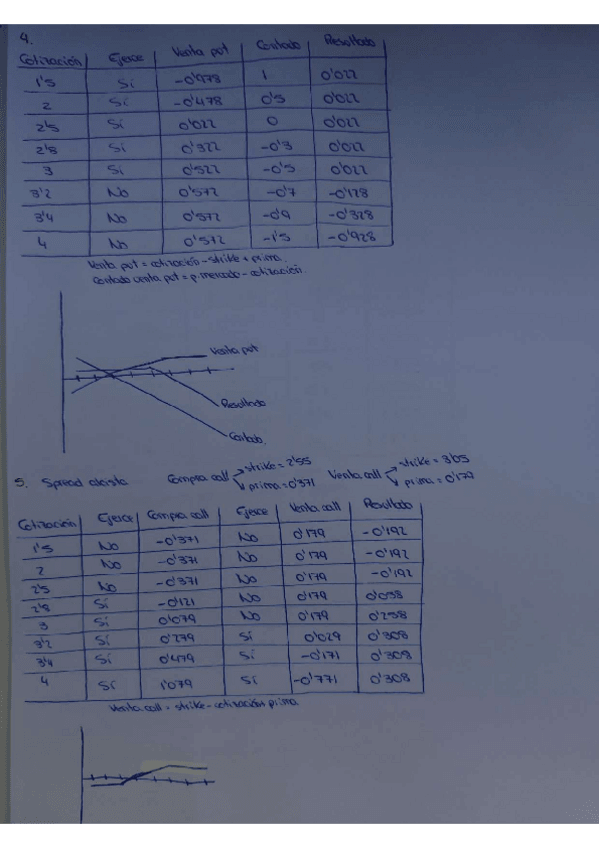 4.
Cotización Ejerce Venta put Contado Resultado
1'5 Sí -0'978 1 0'022
2 Sí -0'478 0'5 0'022
2'5 Sí 0'022 0 0'022
2'8 Sí 0'322 -0'3 0'022
3 Sí 0'522 -0'5 0'022
3'2 No 0'572 -0'7 -0'128
3'4 No 0'572 -0'9 -0'328
4 No 0'572 -1'5 -0'928
Venta put = cotización - strike + prima.
Contado venta put = p. mercado - cotización.
Venta put
Resultado
Contado
5. Spread alcista Compra call strike = 2'55 prima = 0'371 Venta call strike = 3'05 prima = 0'179
Cotización Ejerce Compra call Ejerce Venta call Resultado
1'5 No -0'371 No 0'179 -0'192
2 No -0'371 No 0'179 -0'192
2'5 No -0'371 No 0'179 -0'192
2'8 Sí -0'121 No 0'179 0'058
3 Sí 0'079 No 0'179 0'258
3'2 Sí 0'279 Sí 0'029 0'308
3'4 Sí 0'479 Sí -0'171 0'308
4 Sí 1'079 Sí -0'771 0'308
Venta call = strike - cotización + prima